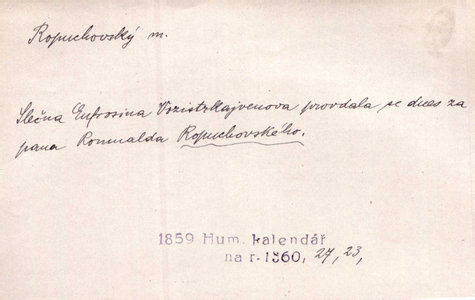 Ropuchovský m.
Slečna Eufrosina Vozistzkajvenova provdala se dnes za
pana Romualda Ropuchovského.
1859 Hum. kalendář
na r. 1860, 27, 23,